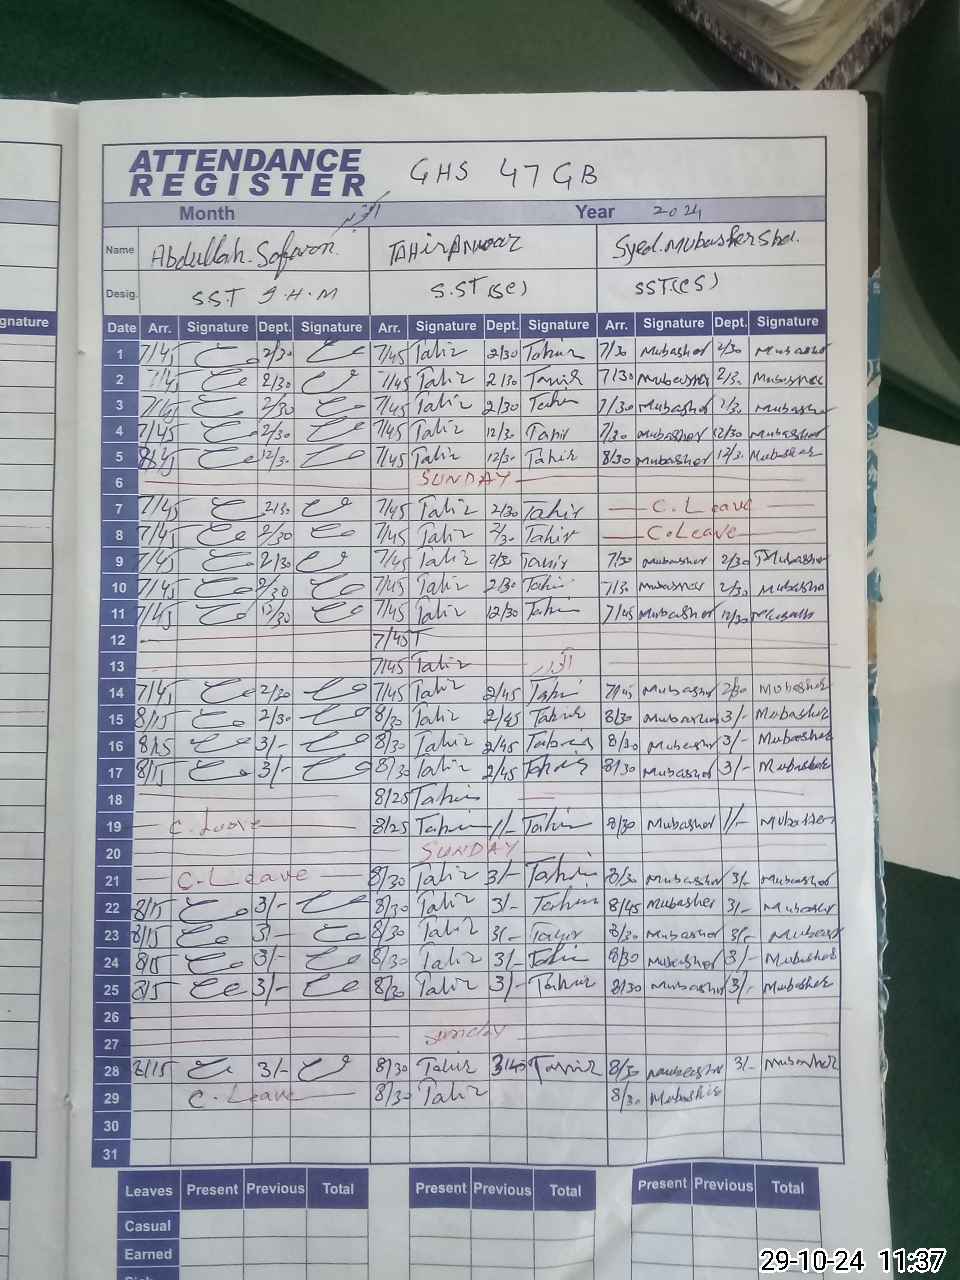 ATTENDANCE
REGISTER GHS 47 GB
Month اکتوبر Year 2024
Name Abdullah. TAHIR ANWAR Syed. Mubasher
Desig. SST I.H.M S.ST(SC) SST(CS)
gnature
Date Arr. Signature Dept. Signature Arr. Signature Dept. Signature Arr. Signature Dept. Signature
1 7/45 2/30 7/45 Tahir 2/30 Tahir 7/30 Mubasher 2/30 Mubasher
2 7/45 2/30 7/45 Tahir 2/30 Tahir 7/30 Mubasher 2/30 Mubasher
3 7/45 2/30 7/45 Tahir 2/30 Tahir 7/30 Mubasher 2/30 Mubasher
4 7/45 2/30 7/45 Tahir 12/30 Tahir 7/30 Mubasher 12/30 Mubasher
5 12/30 7/45 Tahir 12/30 Tahir 8/30 Mubasher 12/30 Mubasher
6 SUNDAY
7 7/45 2/30 7/45 Tahir 2/30 Tahir C. Leave
8 7/45 2/30 7/45 Tahir 2/30 Tahir C. Leave
9 7/45 2/30 7/45 Tahir 2/30 Tahir 7/30 Mubasher 2/30 Mubasher
10 7/45 2/30 7/45 Tahir 2/30 Tahir 7/30 Mubasher 2/30 Mubasher
11 7/45 12/30 7/45 Tahir 12/30 Tahir 7/45 Mubasher 12/30
12 7/45 T
13 7/45 Tahir اتوار
14 7/45 2/30 7/45 Tahir 2/45 Tahir 7/45 Mubasher 2/30 Mubasher
15 8/15 2/30 8/30 Tahir 2/45 Tahir 8/30 Mubasher 3/- Mubasher
16 8/15 3/- 8/30 Tahir 2/45 Tahir 8/30 Mubasher 3/- Mubasher
17 8/15 3/- 8/30 Tahir 2/45 Tahir 8/30 Mubasher 3/- Mubasher
18 8/25 Tahir
19 C. Leave 8/25 Tahir 1/- Tahir 8/30 Mubasher 1/- Mubasher
20 SUNDAY
21 C. Leave 8/30 Tahir 3/- Tahir 8/30 Mubasher 3/- Mubasher
22 8/15 3/- 8/30 Tahir 3/- Tahir 8/45 Mubasher 3/- Mubasher
23 8/15 3/- 8/30 Tahir 3/- Tahir 8/30 Mubasher 3/- Mubasher
24 8/15 3/- 8/30 Tahir 3/- Tahir 8/30 Mubasher 3/- Mubasher
25 8/15 3/- 8/30 Tahir 3/- Tahir 8/30 Mubasher 3/- Mubasher
26
27 Sunday
28 8/15 3/- 8/30 Tahir Tahir 8/30 Mubasher 3/- Mubasher
29 C. Leave 8/30 Tahir 8/30 Mubasher
30
31
Leaves Present Previous Total Present Previous Total Present Previous Total
Casual
Earned
29-10-24 11:37